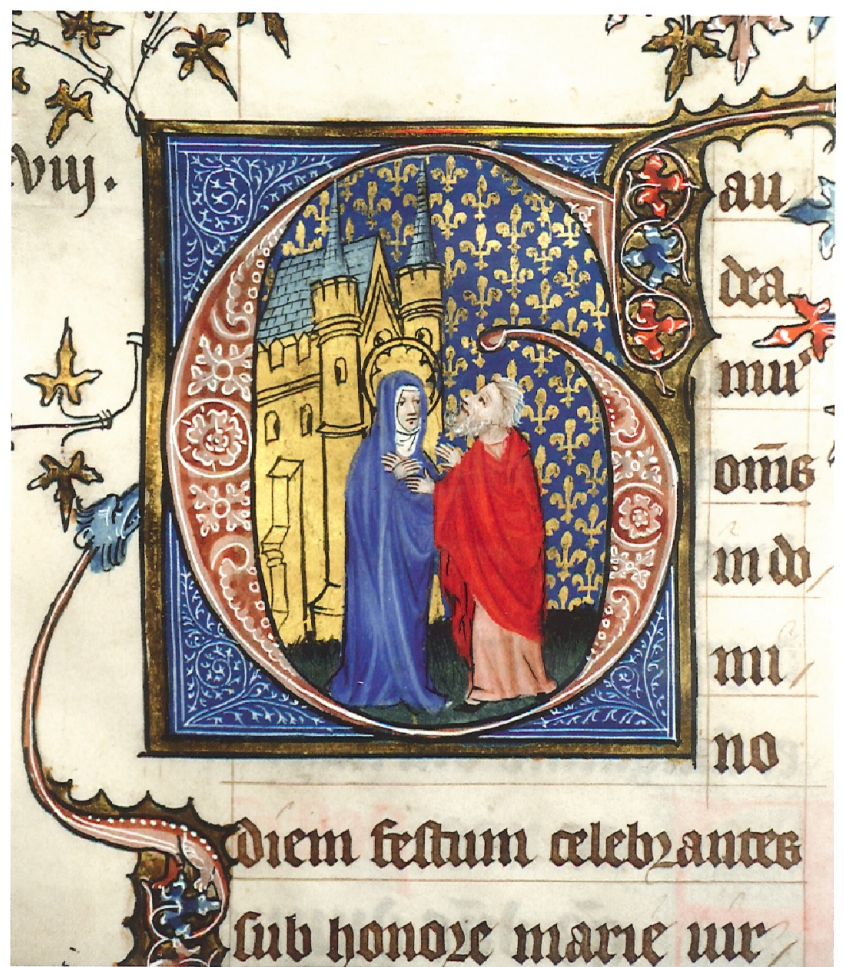 viij.
Gau
dea
mus
om̄s
in do
mi
no
diem festum celebrantes
sub honore marie uir